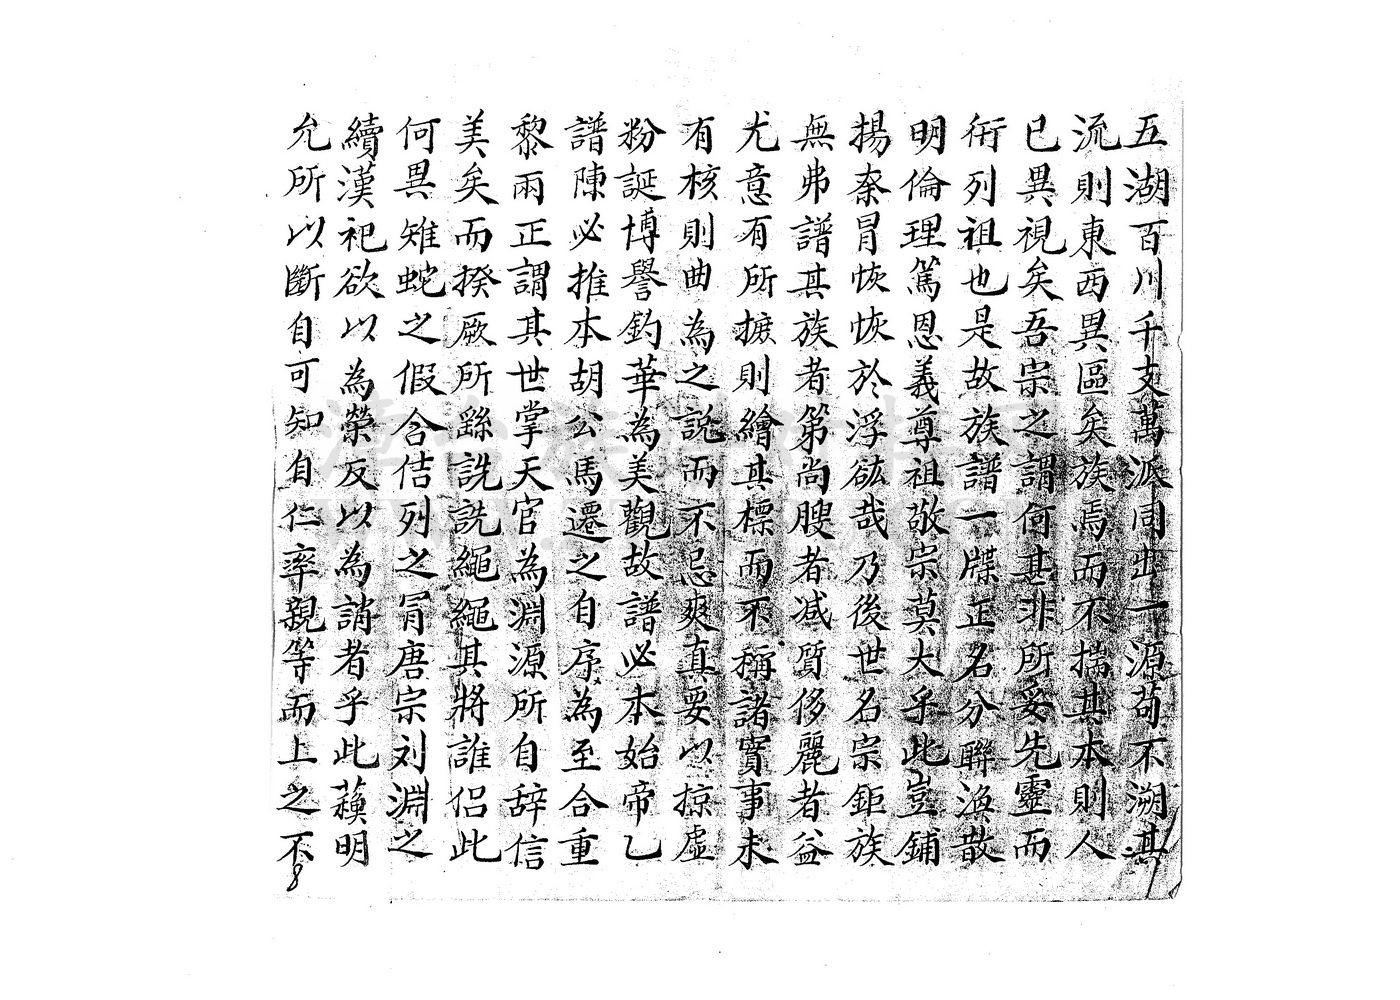 五湖百川千支萬派同出一源苟不溯其
流則東西異區矣族焉而不揣其本則人
已異視矣吾宗之謂何甚非所妥先靈而
衎列祖也是故族譜一牒正名分聯渙散
明倫理篤恩義尊祖敬宗莫大乎此豈鋪
揚夸冒恢恢於浮紘哉乃後世名宗鉅族
無弗譜其族者第尚膄者减質侈麗者益
尤意有所攄則繪其標而不稱諸實事未
有核則曲為之說而不忌爽真要以掠虛
粉誕博譽釣華為美觀故譜必本始帝乙
譜陳必推本胡公馬遷之自序為至合重
黎而正謂其世掌天官為淵源所自辞信
美矣而揆厥所繇詵詵繩繩其將誰侣此
何異雉蛇之假合佶列之冐唐宗刘淵之
續漢祀欲以為榮反以為誚者乎此蘓明
允所以斷自可知自仁率親等而上之不
8